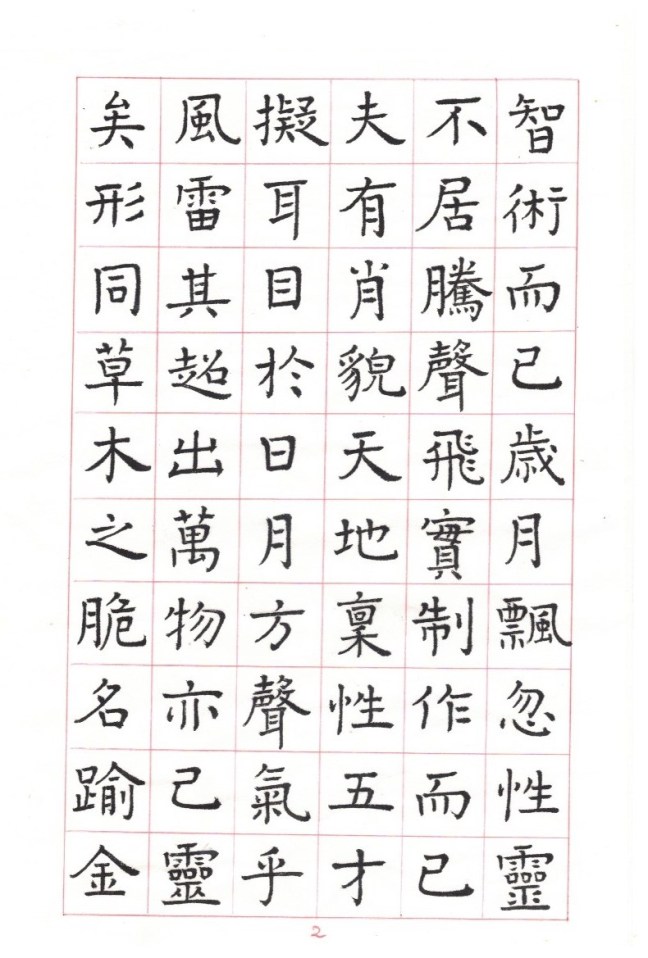 智術而已歲月飄忽性靈
不居騰聲飛實制作而已
夫有肖貌天地稟性五才
擬耳目於日月方聲氣乎
風雷其超出萬物亦已靈
矣形同草木之脆名踰金
2